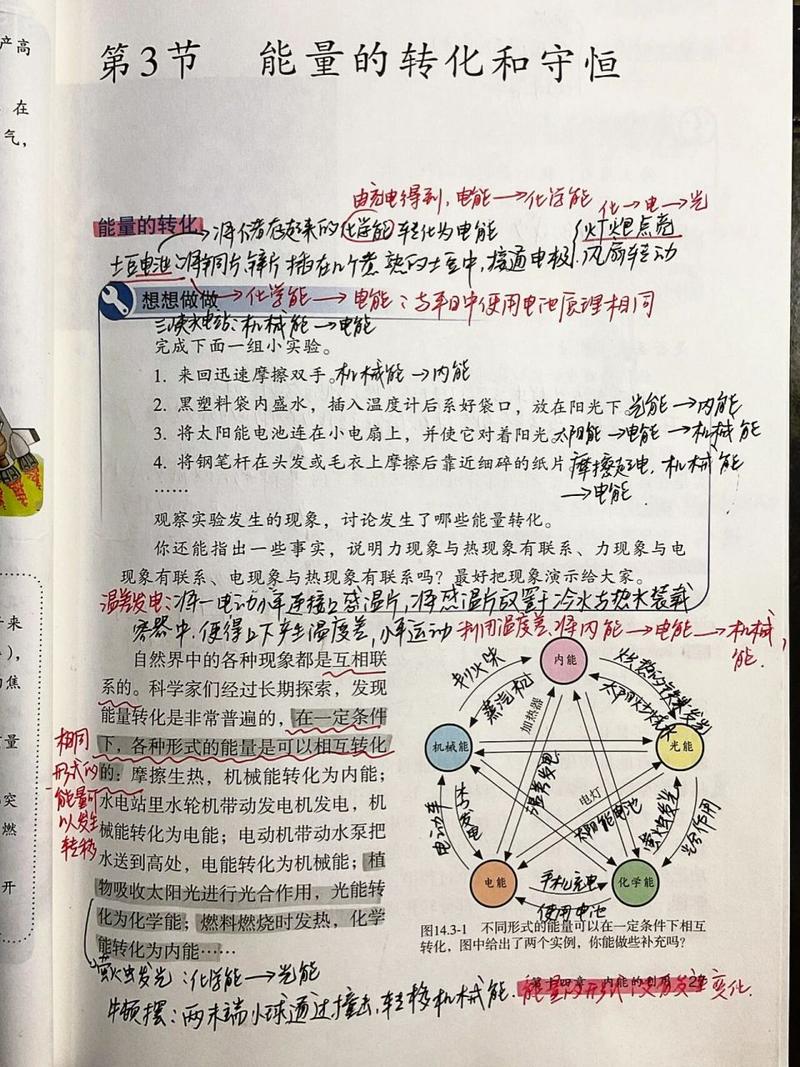 产高
在
气，
第3节 能量的转化和守恒
由充电得到，电能→化学能 化→电→光
能量的转化 →将储存起来的化学能转化为电能 灯炮点亮
土豆电池：将铜片、锌片插在几个煮熟的土豆中，接通电极. 风扇转动
想想做做 →化学能→电能：与平日中使用电池原理相同
三峡水电站：机械能→电能
完成下面一组小实验。
1. 来回迅速摩擦双手。机械能→内能
2. 黑塑料袋内盛水，插入温度计后系好袋口，放在阳光下 光能→内能
3. 将太阳能电池连在小电扇上，并使它对着阳光 太阳能→电能→机械能
4. 将钢笔杆在头发或毛衣上摩擦后靠近细碎的纸片 摩擦起电，机械能
→电能
……
观察实验发生的现象，讨论发生了哪些能量转化。
你还能指出一些事实，说明力现象与热现象有联系、力现象与电
现象有联系、电现象与热现象有联系吗？最好把现象演示给大家。
温差发电：将一电动小车连接上感温片，将感温片放置于冷水与热水装载
容器中，使得上下产生温度差，小车运动 利用温度差，将内能→电能→机械
能.
自然界中的各种现象都是互相联
系的。科学家们经过长期探索，发现
能量转化是非常普遍的，在一定条件
下，各种形式的能量是可以相互转化
的：摩擦生热，机械能转化为内能；
水电站里水轮机带动发电机发电，机
械能转化为电能；电动机带动水泵把
水送到高处，电能转化为机械能；植
物吸收太阳光进行光合作用，光能转
化为化学能；燃料燃烧时发热，化学
能转化为内能……
相同
形式的
能量可
以发生
转移
萤火虫发光：化学能→光能
内能
钻火
蒸汽机
加热器
机械能
光能
温差发电
电灯
太阳能电池
萤火虫发光
光合作用
电动车
水力发电
电能
手机充电
使用电池
化学能
图14.3-1 不同形式的能量可以在一定条件下相互
转化，图中给出了两个实例，你能做些补充吗？
第十四章 内能的利用
牛顿摆：两末端小球通过撞击，转移机械能. 能量的形式不发生变化.
来
），
焦
量
突
燃
开